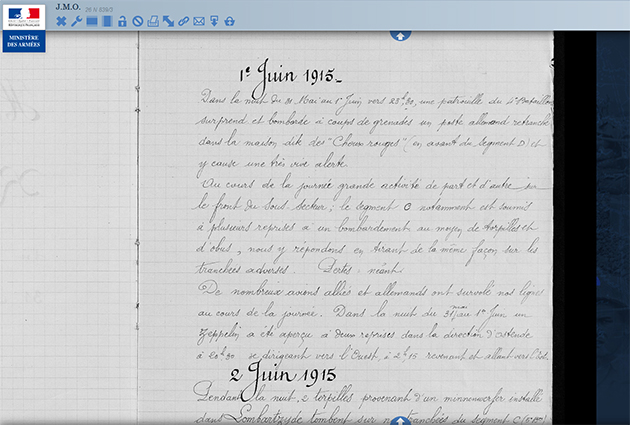 J.M.O. 26 N 839/2
RÉPUBLIQUE FRANÇAISE
MINISTÈRE
DES ARMÉES
1er Juin 1915
Dans la nuit du 31 Mai au 1er Juin vers 23h30, une patrouille du 4e Bataillon
surprend et bombarde à coups de grenades un poste allemand retranché
dans la maison dite des "Choux rouges" (en avant du segment D) et
y cause une très vive alerte.
Au cours de la journée grande activité de part et d'autre sur
le front du sous-secteur ; le segment C notamment est soumis
à plusieurs reprises à un bombardement au moyen de torpilles et
d'obus, nous y répondons en tirant de la même façon sur les
tranchées adverses. Pertes : néant.
De nombreux avions alliés et allemands ont survolé nos lignes
au cours de la journée. Dans la nuit du 31 mai au 1er Juin un
Zeppelin a été aperçu à deux reprises dans la direction d'Ostende
à 20h30 se dirigeant vers l'Ouest, à 2h15 revenant et allant vers l'Est.
2 Juin 1915
Pendant la nuit, 2 torpilles provenant d'un minnenwerfer installé
dans Lombartzyde tombent sur nos tranchées du segment C